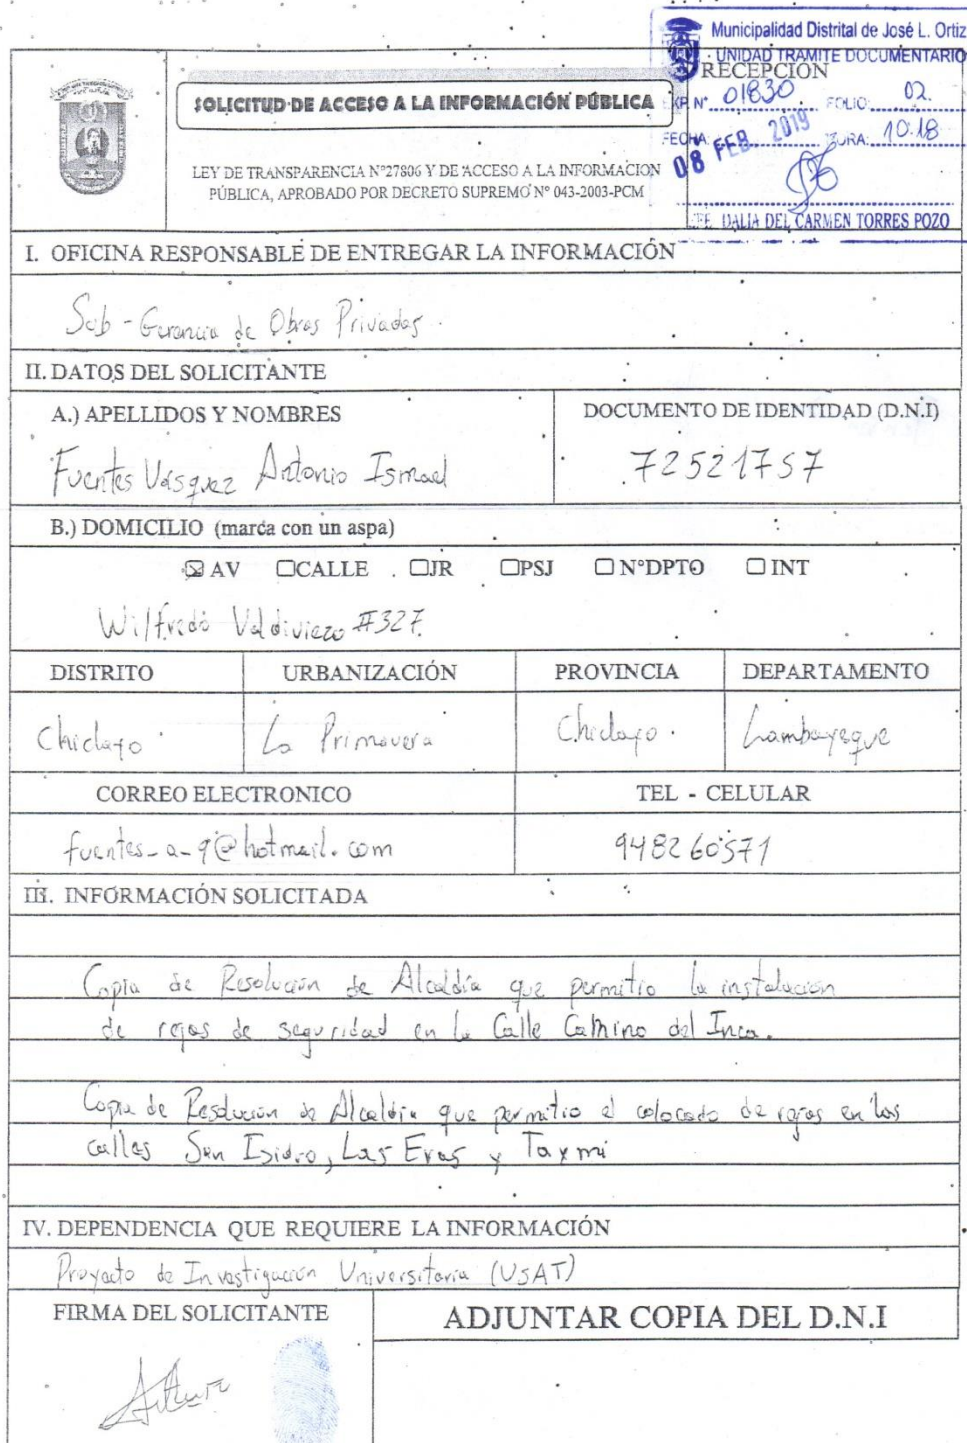 Municipalidad Distrital de José L. Ortiz
UNIDAD TRAMITE DOCUMENTARIO
RECEPCION
EXP. N° 01830 FOLIO: 02.
FECHA 08 FEB. 2019 HORA: 10:18
DALIA DEL CARMEN TORRES POZO
SOLICITUD DE ACCESO A LA INFORMACIÓN PÚBLICA
LEY DE TRANSPARENCIA N°27806 Y DE ACCESO A LA INFORMACION
PÚBLICA, APROBADO POR DECRETO SUPREMO N° 043-2003-PCM
I. OFICINA RESPONSABLE DE ENTREGAR LA INFORMACIÓN
Sub - Gerencia de Obras Privadas.
II. DATOS DEL SOLICITANTE
A.) APELLIDOS Y NOMBRES
DOCUMENTO DE IDENTIDAD (D.N.I)
Fuentes Vásquez Antonio Ismael
72521757
B.) DOMICILIO (marca con un aspa)
☒ AV ☐CALLE ☐JR ☐PSJ ☐N°DPTO ☐INT
Wilfredo Valdiviezo #327.
DISTRITO URBANIZACIÓN PROVINCIA DEPARTAMENTO
Chiclayo. La Primavera Chiclayo. Lambayeque
CORREO ELECTRONICO TEL - CELULAR
fuentes_a_9@hotmail.com 948260571
III. INFORMACIÓN SOLICITADA
Copia de Resolución de Alcaldía que permitio la instalación
de rejas de seguridad en la Calle Camino del Inca.
Copia de Resolución de Alcaldía que permitio el colocado de rejas en las
calles San Isidro, Las Eras y Taymi
IV. DEPENDENCIA QUE REQUIERE LA INFORMACIÓN
Proyecto de Investigación Universitaria (USAT)
FIRMA DEL SOLICITANTE
ADJUNTAR COPIA DEL D.N.I